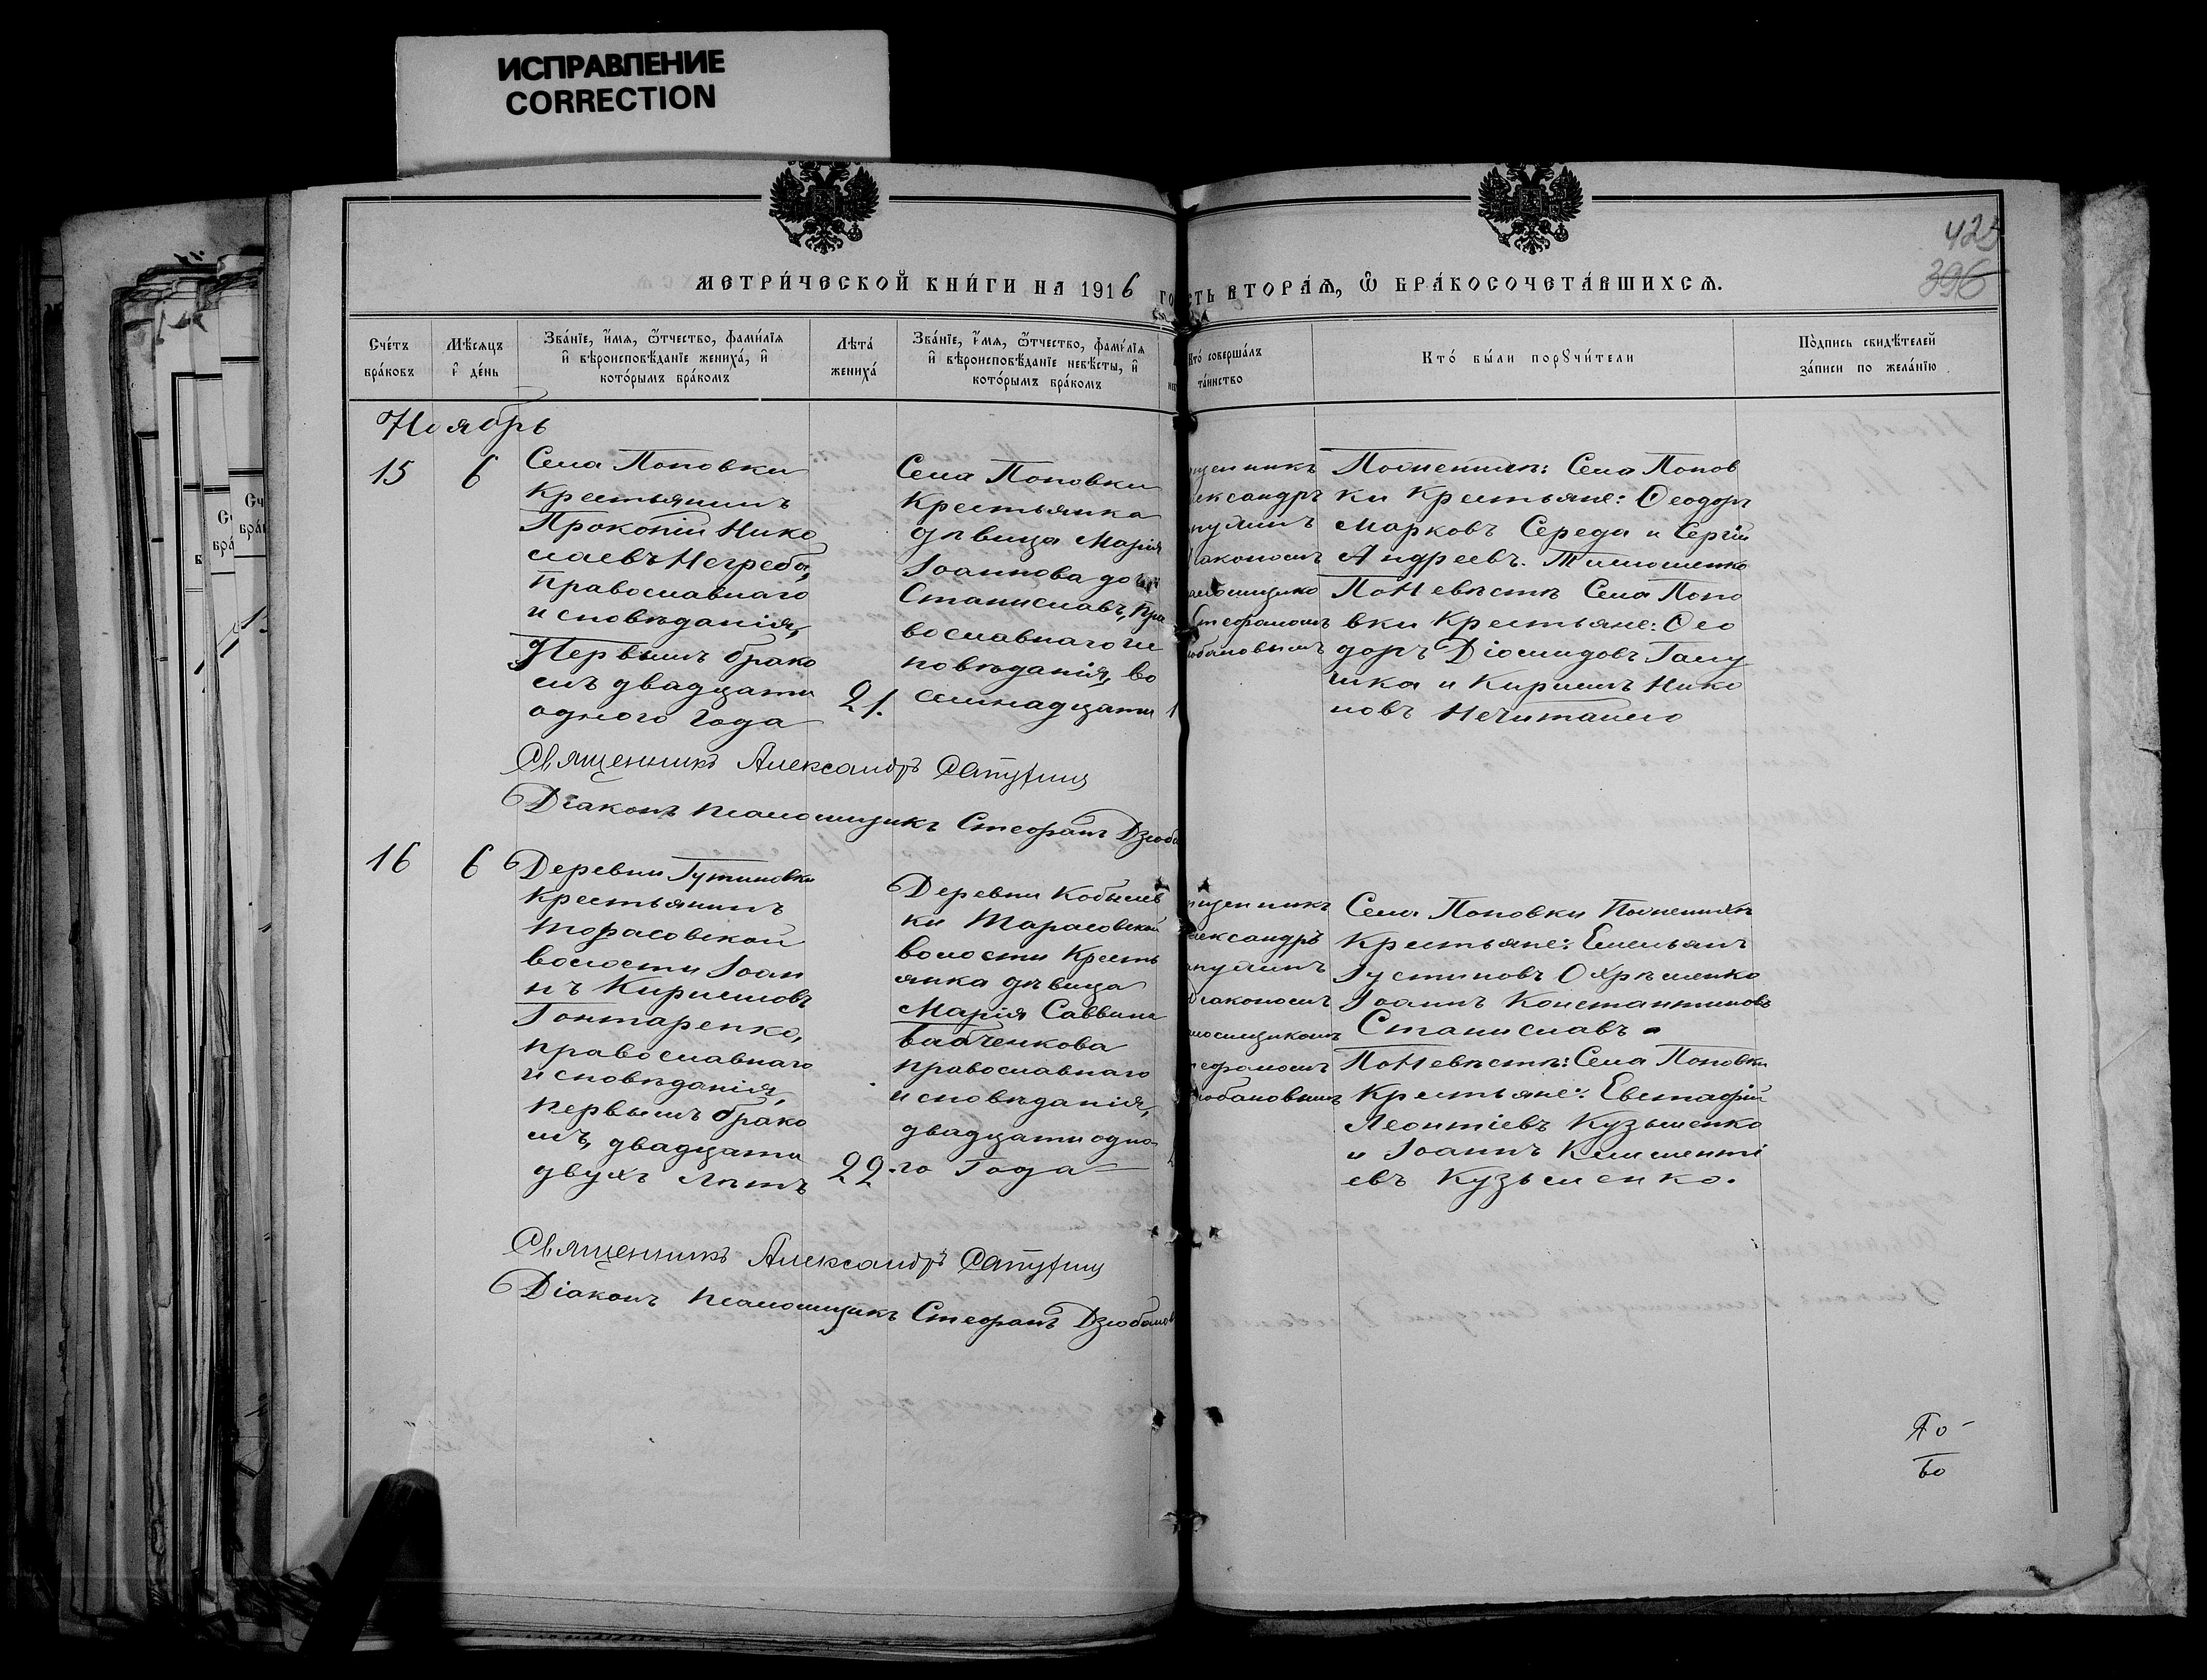 ИСПРАВЛЕНИЕ
CORRECTION
425
396
МЕТРИ́ЧЕСКОЙ КНИ́ГИ НА 1916 ГО
СТЬ ВТОРА́Я, Ѿ БРА́КОСОЧЕТА́ВШИХСЯ.
Сче́тъ бра́ковъ
Мѣ́сяцъ и҆ де́нь
Зва́нїе, и҆́мя, ѻ҆́тчество, фами́лїя и҆ вѣроисповѣ́данїе жениха́, и҆ кото́рымъ бра́комъ
Лѣта́ жениха́
Зва́нїе, и҆́мя, ѻ҆́тчество, фами́лїя и҆ вѣроисповѣ́данїе невѣ́сты, и҆ кото́рымъ бра́комъ
Кто́ соверша́лъ та́инство
Кто́ бы́ли порꙋчи́тели
По́дпись свидѣ́телей за́писи по жела́нїю
Ноябрь
15
6
Села Поповки
Крестьянинъ
Прокопій Нико
лаевъ Негреба,
православнаго
исповѣданія,
Первымъ брако
мъ двадцати
одного года
21.
Села Поповки
Крестьянка
дѣвица Марія
Іоаннова дочь
Станиславъ, пра
вославнаго ис
повѣданія, во
семнадцати
1
щенникъ
лександръ
пулинъ
іакономъ
аломщико
Стефаномъ
юбановымъ
По женихѣ: Села Попов
ки Крестьяне: Ѳеодоръ
Марковъ Середа и Сергій
Андреевъ. Тимошенко
По Невѣстѣ Села Попо
вки Крестьяне: Ѳео
доръ Діомидовъ Галу
шка и Кириллъ Нико
новъ Нечитайло
Священникъ Александръ Сапулинъ
Діаконъ псаломщикъ Стефанъ Дзюба
16
6
Деревни Гутиновки
Крестьянинъ
Тарасовской
волости Іоан
нъ Кирилловъ
Гонтаренко,
православнаго
исповѣданія,
первымъ брако
мъ, двадцати
двухъ лѣтъ
22.
Деревни Кобылев
ки Тарасовской
волости Кресть
янка дѣвица
Марія Саввина
православнаго
исповѣданія,
двадцати одно
го года
щенникъ
лександръ
пулинъ
діакономъ
ломщикомъ
тефаномъ
юбановымъ
Села Поповки По женихѣ
Крестьяне: Емельянъ
Іустиновъ Охрѣменко
Іоаннъ Константиновъ
Станиславъ
По Невѣстѣ: Села Поповки
Крестьяне: Евстафій
Леонтіевъ Кузьменко
и Іоаннъ Клименті
евъ Кузьменко.
Священникъ Александръ Сапулинъ
Діаконъ псаломщикъ Стефанъ Дзюбанов